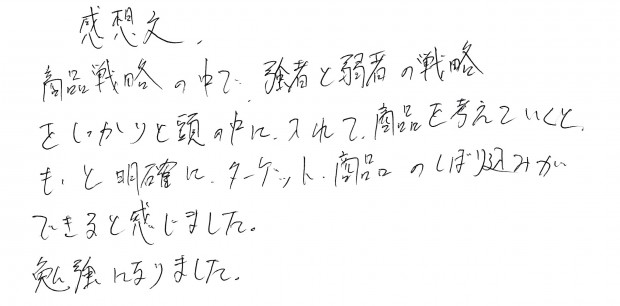 感想文、
商品戦略の中で、強者と弱者の戦略
をしっかりと頭の中に、入れて、商品を考えていくと、
もっと明確に、ターゲット、商品のしぼり込みが
できると感じました。
勉強になりました。